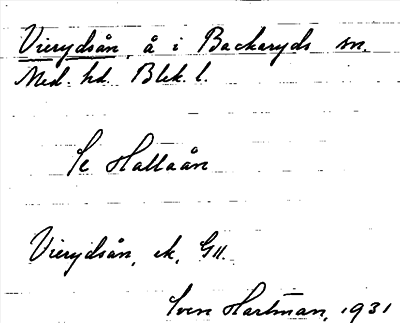 Vierydsån, å i Backaryds sn.
Med. hd. Blek. l.
Se Hallaån
Vierydsån, ek, G11.
Sven Hartman, 1931